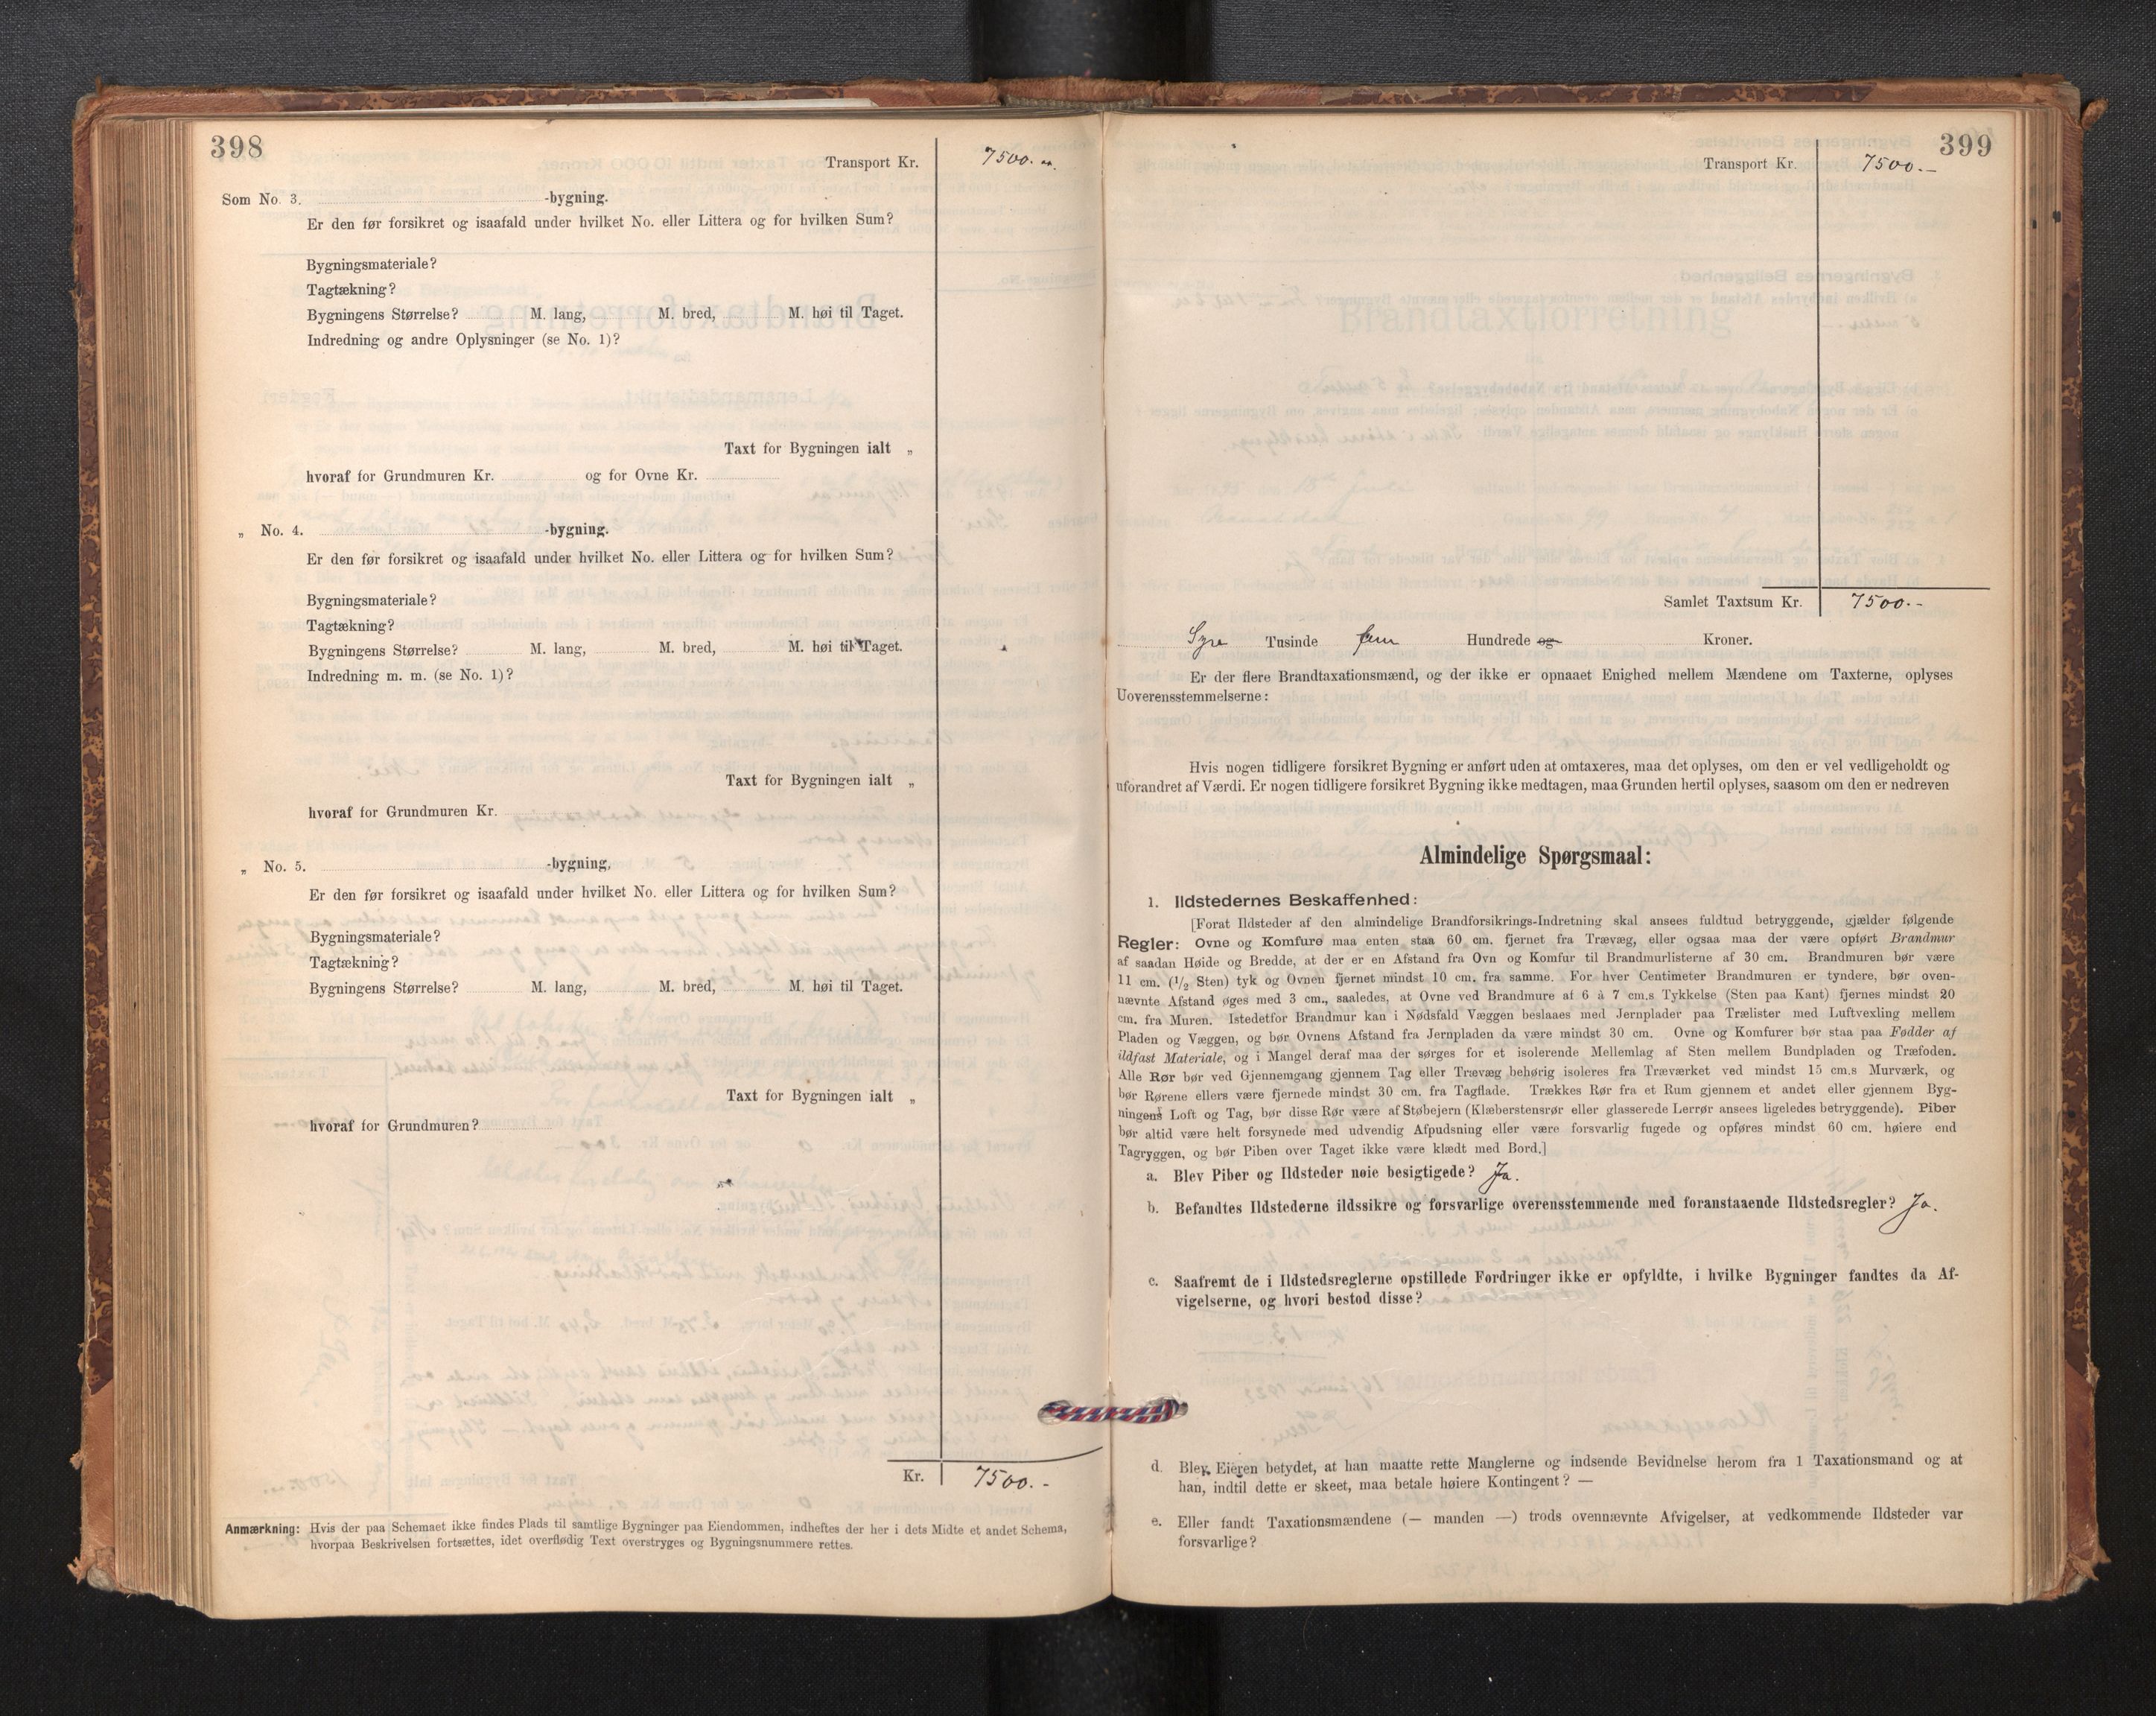 398
Transport Kr. 7500.
Som No. 3. -bygning.
Er den før forsikret og isaafald under hvilket No. eller Littera og for hvilken Sum?
Bygningsmateriale?
Tagtækning?
Bygningens Størrelse? M. lang, M. bred, M. høi til Taget.
Indredning og andre Oplysninger (se No. 1)?
Taxt for Bygningen ialt „
hvoraf for Grundmuren Kr. og for Ovne Kr.
„ No. 4. -bygning.
Er den før forsikret og isaafald under hvilket No. eller Littera og for hvilken Sum?
Bygningsmateriale?
Tagtækning?
Bygningens Størrelse? M. lang, M. bred, M. høi til Taget.
Indredning m. m. (se No. 1)?
Taxt for Bygningen ialt „
hvoraf for Grundmuren Kr.
„ No. 5. -bygning,
Er den før forsikret og isaafald under hvilket No. eller Littera og for hvilken Sum?
Bygningsmateriale?
Tagtækning?
Bygningens Størrelse? M. lang, M. bred, M. høi til Taget.
Taxt for Bygningen ialt „
hvoraf for Grundmuren?
Kr. 7500.-
Anmærkning: Hvis der paa Schemaet ikke findes Plads til samtlige Bygninger paa Eiendommen, indheftes der her i dets Midte et andet Schema,
hvorpaa Beskrivelsen fortsættes, idet overflødig Text overstryges og Bygningsnummere rettes.
399
Transport Kr. 7500.-
Samlet Taxtsum Kr. 7500.-
Syv Tusinde fem Hundrede og Kroner.
Er der flere Brandtaxationsmænd, og der ikke er opnaaet Enighed mellem Mændene om Taxterne, oplyses
Uoverensstemmelserne:
Hvis nogen tidligere forsikret Bygning er anført uden at omtaxeres, maa det oplyses, om den er vel vedligeholdt og
uforandret af Værdi. Er nogen tidligere forsikret Bygning ikke medtagen, maa Grunden hertil oplyses, saasom om den er nedreven
Almindelige Spørgsmaal:
1. Ildstedernes Beskaffenhed:
[Forat Ildsteder af den almindelige Brandforsikrings-Indretning skal ansees fuldtud betryggende, gjælder følgende
Regler: Ovne og Komfure maa enten staa 60 cm. fjernet fra Trævæg, eller ogsaa maa der være opført Brandmur
af saadan Høide og Bredde, at der er en Afstand fra Ovn og Komfur til Brandmurlisterne af 30 cm. Brandmuren bør være
11 cm. (1/2 Sten) tyk og Ovnen fjernet mindst 10 cm. fra samme. For hver Centimeter Brandmuren er tyndere, bør oven-
nævnte Afstand øges med 3 cm., saaledes, at Ovne ved Brandmure af 6 à 7 cm.s Tykkelse (Sten paa Kant) fjernes mindst 20
cm. fra Muren. Istedetfor Brandmur kan i Nødsfald Væggen beslaaes med Jernplader paa Trælister med Luftvexling mellem
Pladen og Væggen, og bør Ovnens Afstand fra Jernpladen da være mindst 30 cm. Ovne og Komfurer bør staa paa Fødder af
ildfast Materiale, og i Mangel deraf maa der sørges for et isolerende Mellemlag af Sten mellem Bundpladen og Træfoden.
Alle Rør bør ved Gjennemgang gjennem Tag eller Trævæg behørig isoleres fra Træværket ved mindst 15 cm.s Murværk, og
bør Rørene ellers være fjernede mindst 30 cm. fra Tagflade. Trækkes Rør fra et Rum gjennem et andet eller gjennem Byg-
ningens Loft og Tag, bør disse Rør være af Støbejern (Klæberstensrør eller glasserede Lerrør ansees ligeledes betryggende). Piber
bør altid være helt forsynede med udvendig Afpudsning eller være forsvarlig fugede og opføres mindst 60 cm. høiere end
Tagryggen, og bør Piben over Taget ikke være klædt med Bord.]
a. Blev Piber og Ildsteder nøie besigtigede? Ja.
b. Befandtes Ildstederne ildssikre og forsvarlige overensstemmende med foranstaaende Ildstedsregler? Ja.
c. Saafremt de i Ildstedsreglerne opstillede Fordringer ikke er opfyldte, i hvilke Bygninger fandtes da Af-
vigelserne, og hvori bestod disse?
d. Blev Eieren betydet, at han maatte rette Manglerne og indsende Bevidnelse herom fra 1 Taxationsmand og at
han, indtil dette er skeet, maa betale høiere Kontingent? —
e. Eller fandt Taxationsmændene (— manden —) trods ovennævnte Afvigelser, at vedkommende Ildsteder var
forsvarlige?